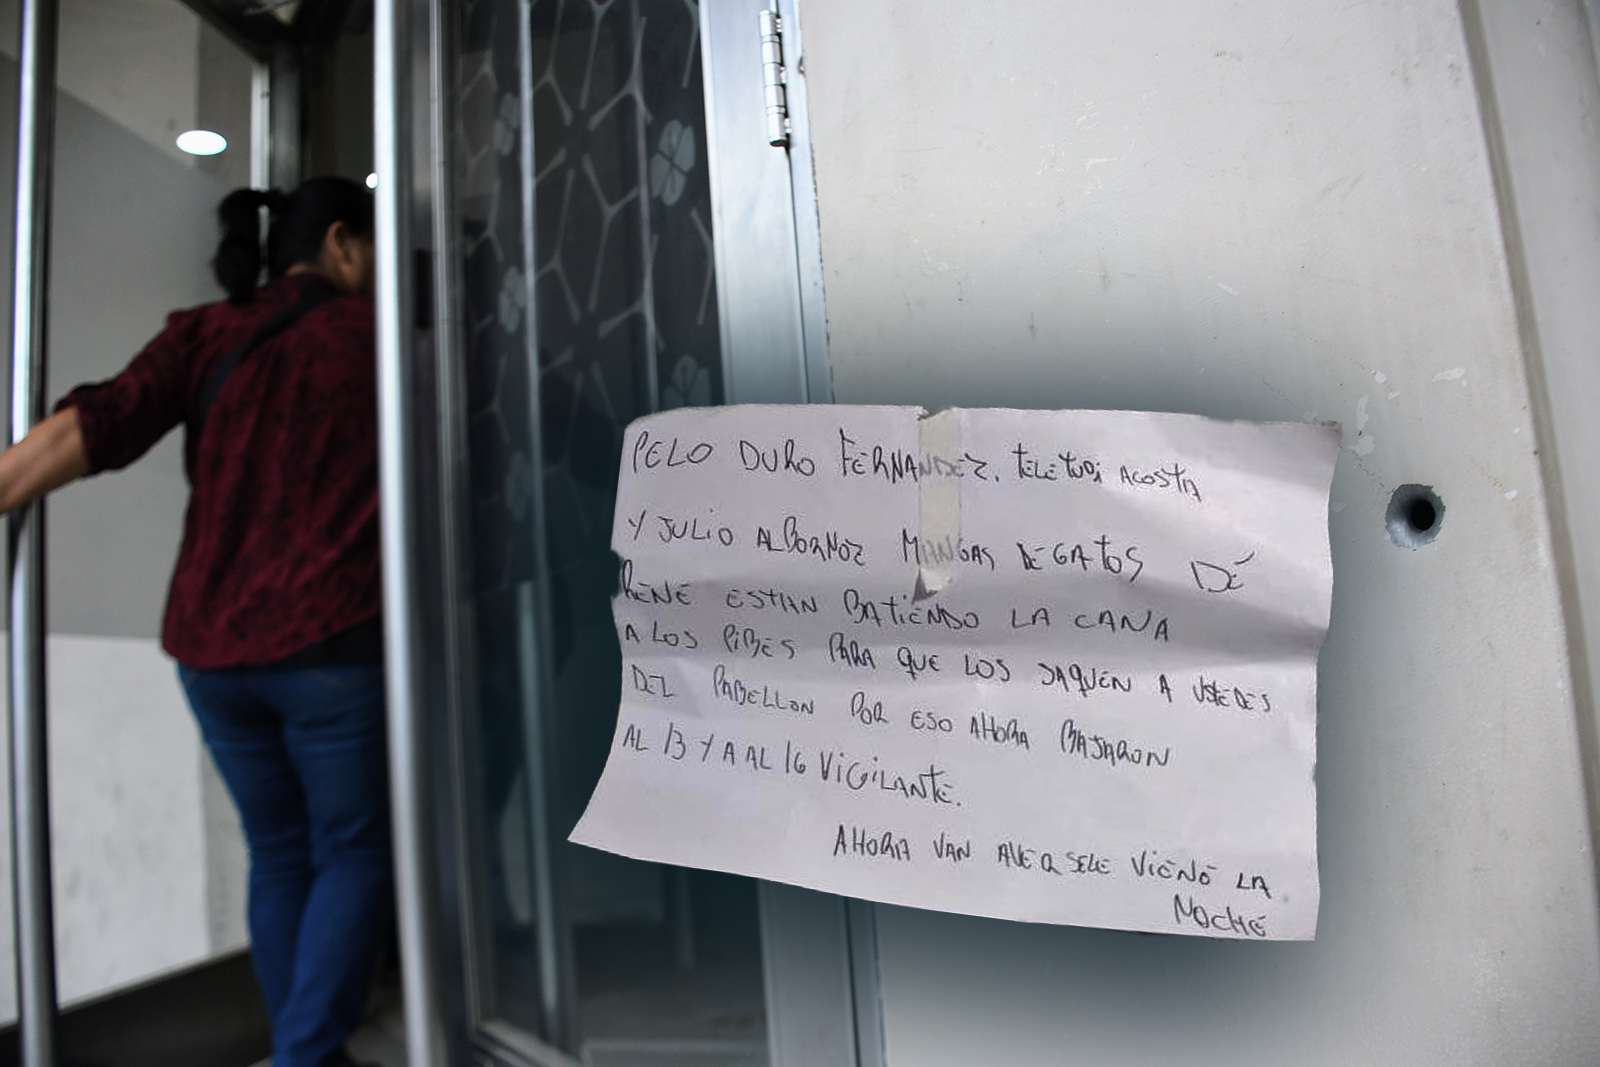 PELO DURO FERNANDEZ. TELETUBI ACOSTA
Y JULIO ALBORNOZ MANGAS DE GATOS DÉ
RENÉ ESTAN BATIENDO LA CANA
A LOS PIBES PARA QUE LOS SAQUEN A USTEDES
DEL PABELLON POR ESO AHORA BAJARON
AL 13 Y A AL 16 VIGILANTE.
AHORA VAN AVER SELE VIENE LA
NOCHE